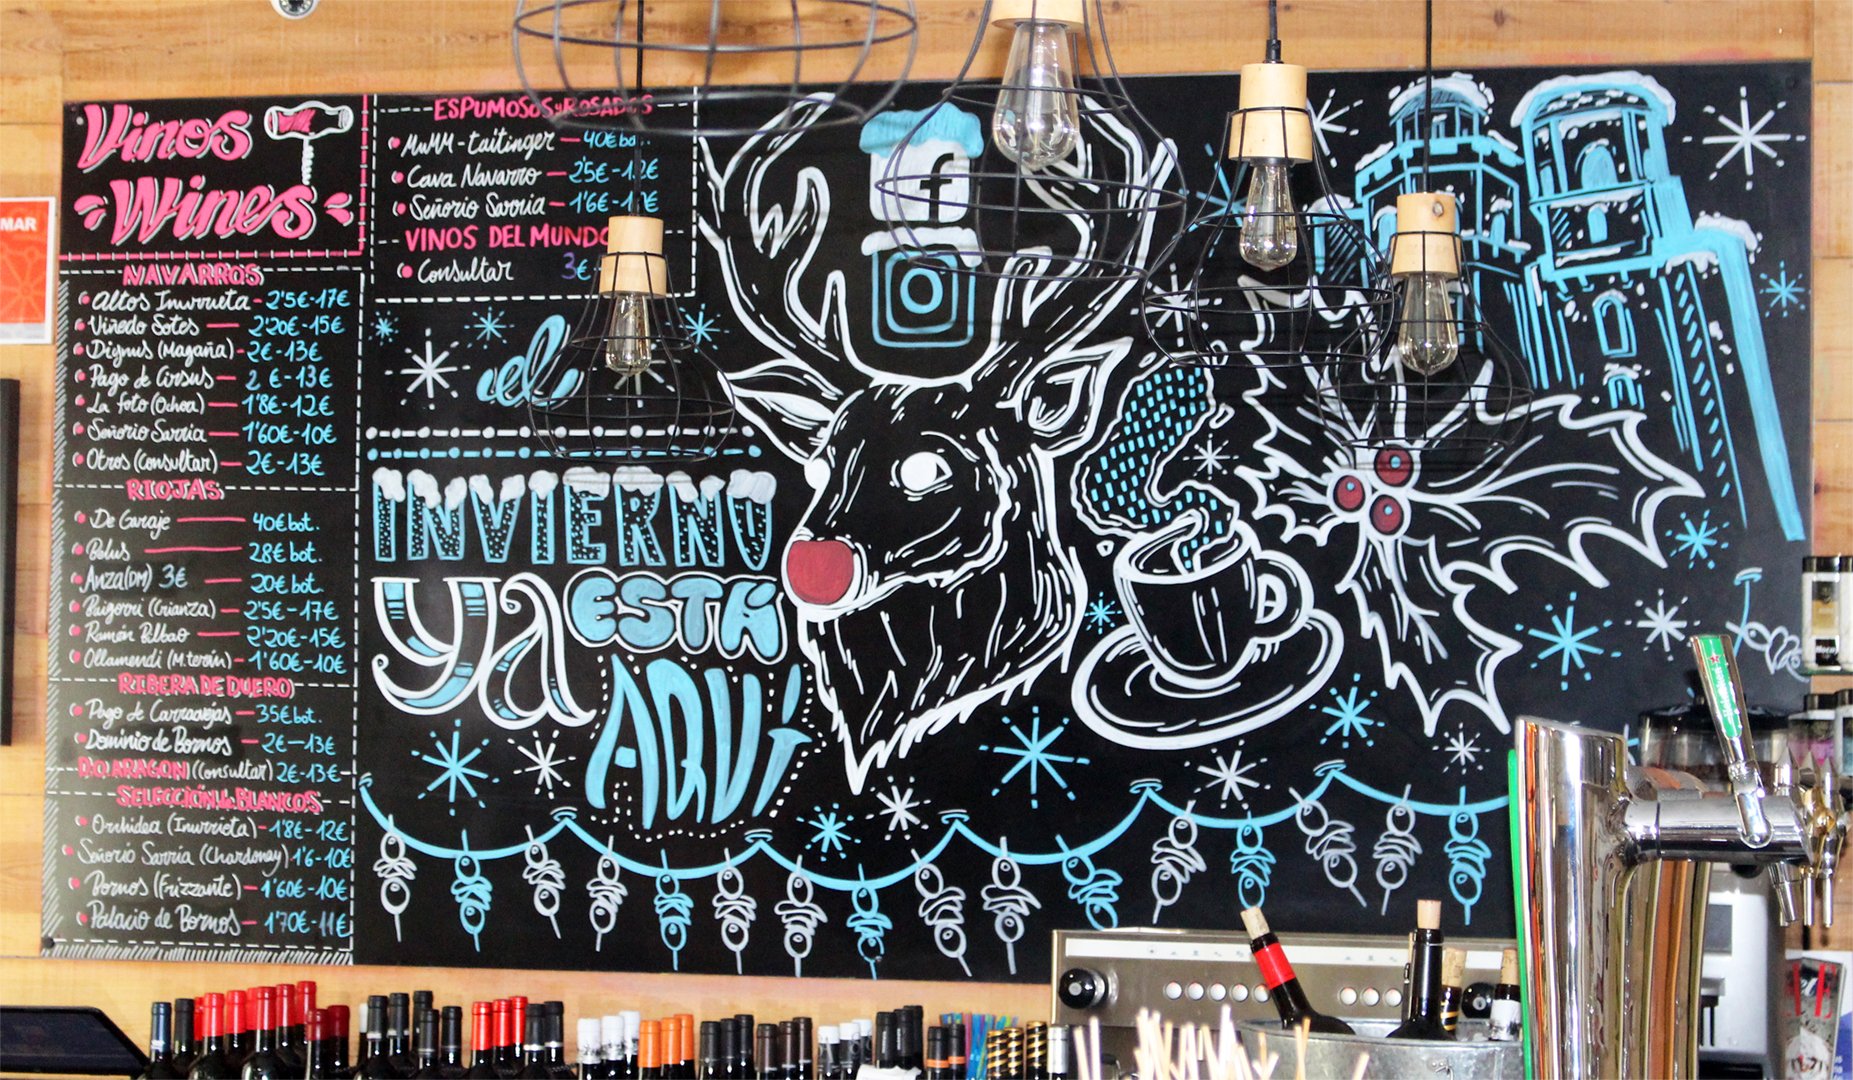 MAR
Vinos
Wines
NAVARROS
Altos Inurrieta - 2'5€-17€
Viñedo Sotes — 2'20€-15€
Dignus (Magaña) - 2€-13€
Pago de Cirsus — 2€-13€
La foto (Ochoa) — 1'8€-12€
Señorio Sarria — 1'60€-10€
Otros (Consultar) — 2€-13€
RIOJAS
De Garaje — 40€ bot.
Belus — 28€ bot.
Anza (DM) 3€ — 20€ bot.
Baigorri (Crianza) — 2'5€-17€
Ramón Bilbao — 2'20€-15€
Ollamendi (M.terán) — 1'60€-10€
RIBERA DE DUERO
Pago de Carraovejas — 35€ bot.
Dominio de Bornos — 2€-13€
D.O. ARAGON (Consultar) 2€-13€
SELECCIÓN de BLANCOS
Orchidea (Inurrieta) - 1'8€-12€
Señorio Sarria (Chardonay) 1'6-10€
Bornos (Frizzante) — 1'60€-10€
Palacio de Bornos — 1'70€-11€
ESPUMOSOS y ROSADOS
MuMM - taitinger — 40€
Cava Navarro — 2'5€-12€
Señorio Sarria — 1'6€
VINOS DEL MUNDO
Consultar 3€
f
el
INVIERNO
ya ESTÁ
AQUÍ